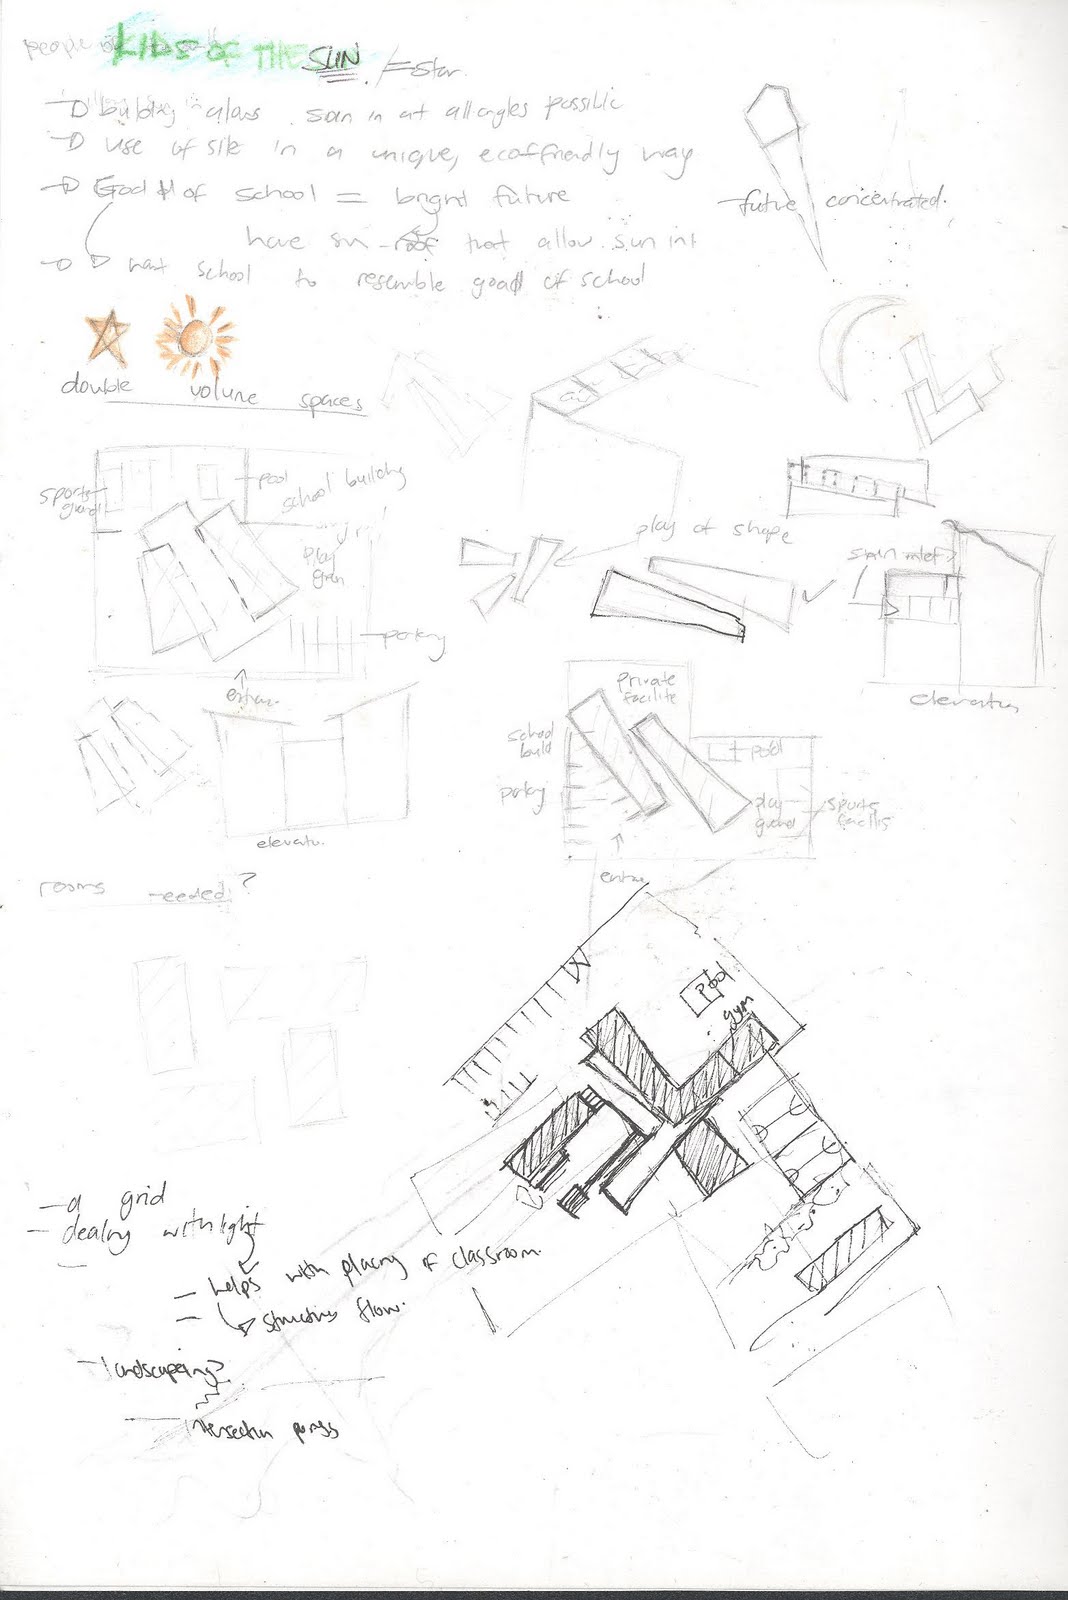 people of
KIDS OF THE SUN /=star.
building allows sun in at all angles possible
use of site in a unique, eco-friendly way
Goal of school = bright future
have sun-roof that allow sun int
want school to resemble goal of school
future concentrated.
double volume spaces
sports
pool
school building
play
parking
play of shape
sun inlet
elevation
private
school
build
pool
parking
play
sports
elevatn.
rooms needed?
pool
gym
- a grid
- dealing with light
- helps with placing of classroom.
- structures flow.
- landscaping?